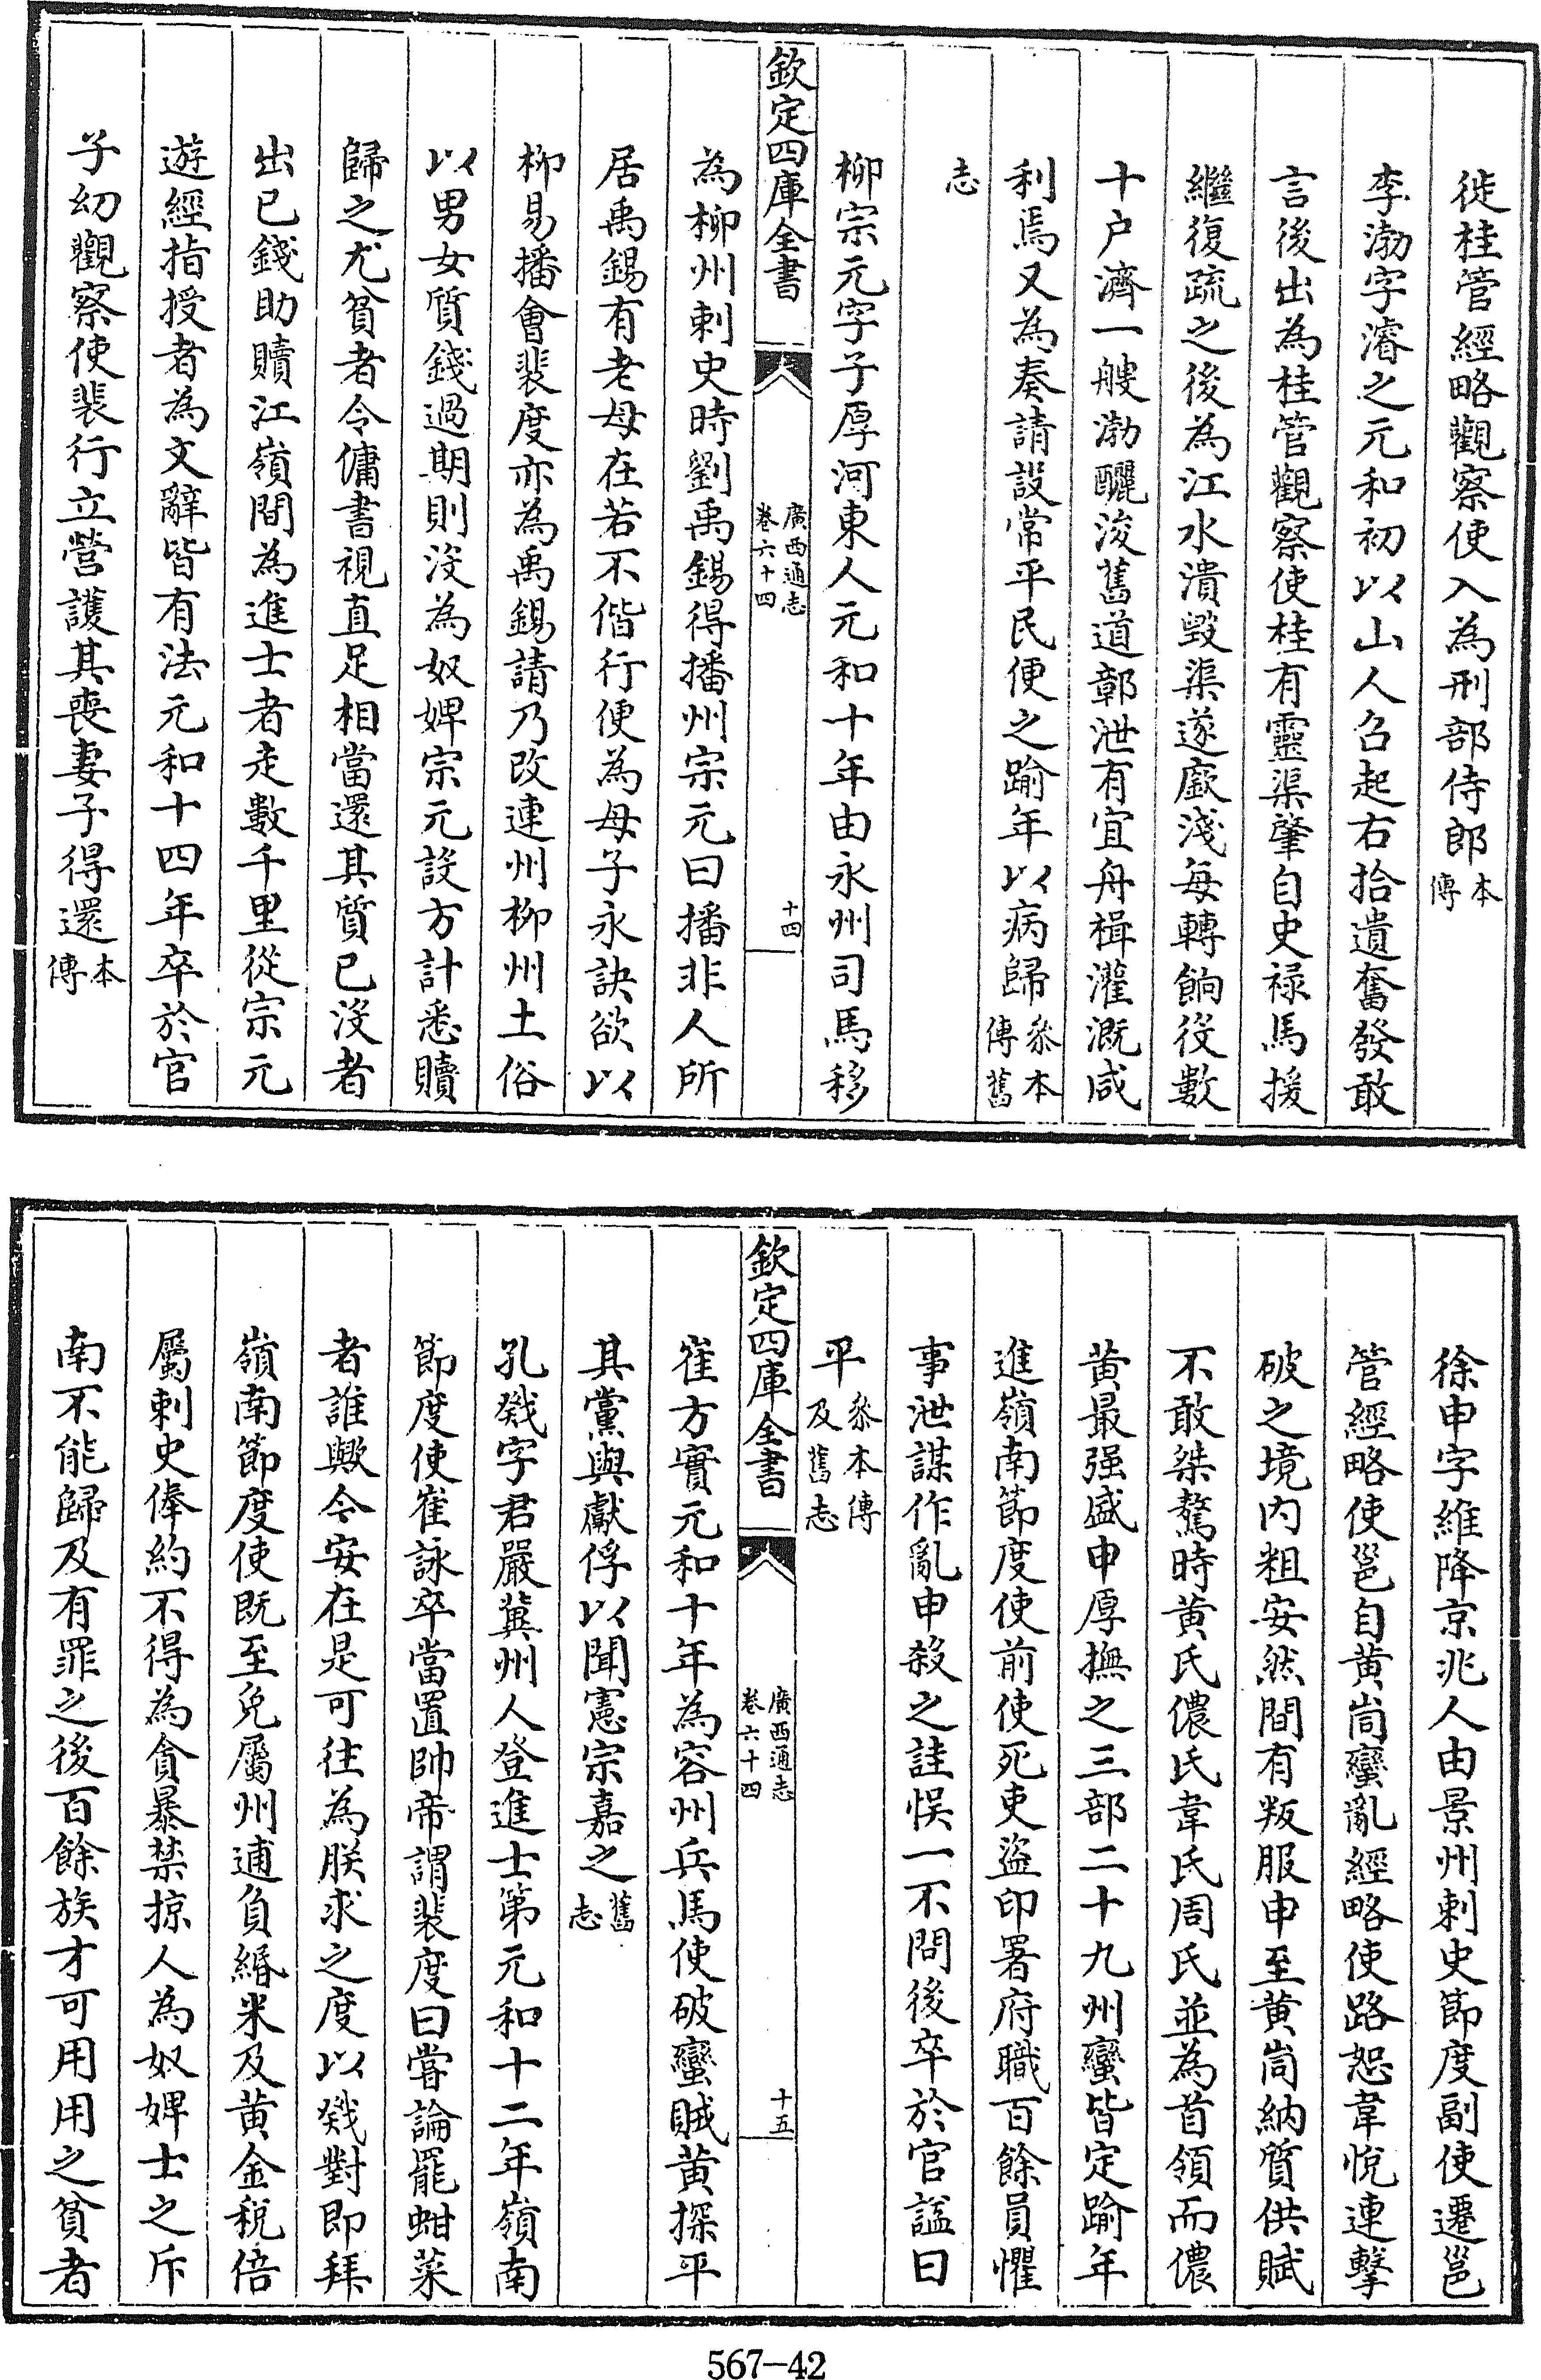 徙桂管經略觀察使入為刑部侍郎本傳
李渤字濬之元和初以山人召起右拾遺奮發敢
言後出為桂管觀察使桂有靈渠肇自史禄馬援
繼復疏之後為江水潰毀渠遂廞淺每轉餉役數
十户濟一艘渤釃浚舊道鄣泄有宜舟楫灌溉咸
利焉又為奏請設常平民便之踰年以病歸叅本傳舊
志
柳宗元字子厚河東人元和十年由永州司馬移
欽定四庫全書
廣西通志
卷六十四
十四
為柳州刺史時劉禹錫得播州宗元曰播非人所
居禹錫有老母在若不偕行便為母子永訣欲以
柳易播會裴度亦為禹錫請乃改連州柳州土俗
以男女質錢過期則没為奴婢宗元設方計悉贖
歸之尤貧者令傭書視直足相當還其質已没者
出已錢助贖江嶺間為進士者走數千里從宗元
遊經指授者為文辭皆有法元和十四年卒於官
子幼觀察使裴行立營護其喪妻子得還本傳
徐申字維降京兆人由景州刺史節度副使遷邕
管經略使邕自黄峝蠻亂經略使路恕韋悅連擊
破之境内粗安然間有叛服申至黄峝納質供賦
不敢桀驁時黄氏儂氏韋氏周氏並為首領而儂
黄最强盛申厚撫之三部二十九州蠻皆定踰年
進嶺南節度使前使死吏盜印署府職百餘員懼
事泄謀作亂申殺之詿悞一不問後卒於官諡曰
平叅本傳及舊志
欽定四庫全書
廣西通志
卷六十四
十五
崔方實元和十年為容州兵馬使破蠻賊黄探平
其黨與獻俘以聞憲宗嘉之舊志
孔戣字君嚴冀州人登進士第元和十二年嶺南
節度使崔詠卒當置帥帝謂裴度曰嘗論罷蚶菜
者誰歟今安在是可往為朕求之度以戣對即拜
嶺南節度使既至免屬州逋負緡米及黄金稅倍
屬刺史俸約不得為貪暴禁掠人為奴婢士之斥
南不能歸及有罪之後百餘族才可用用之貧者
567-42